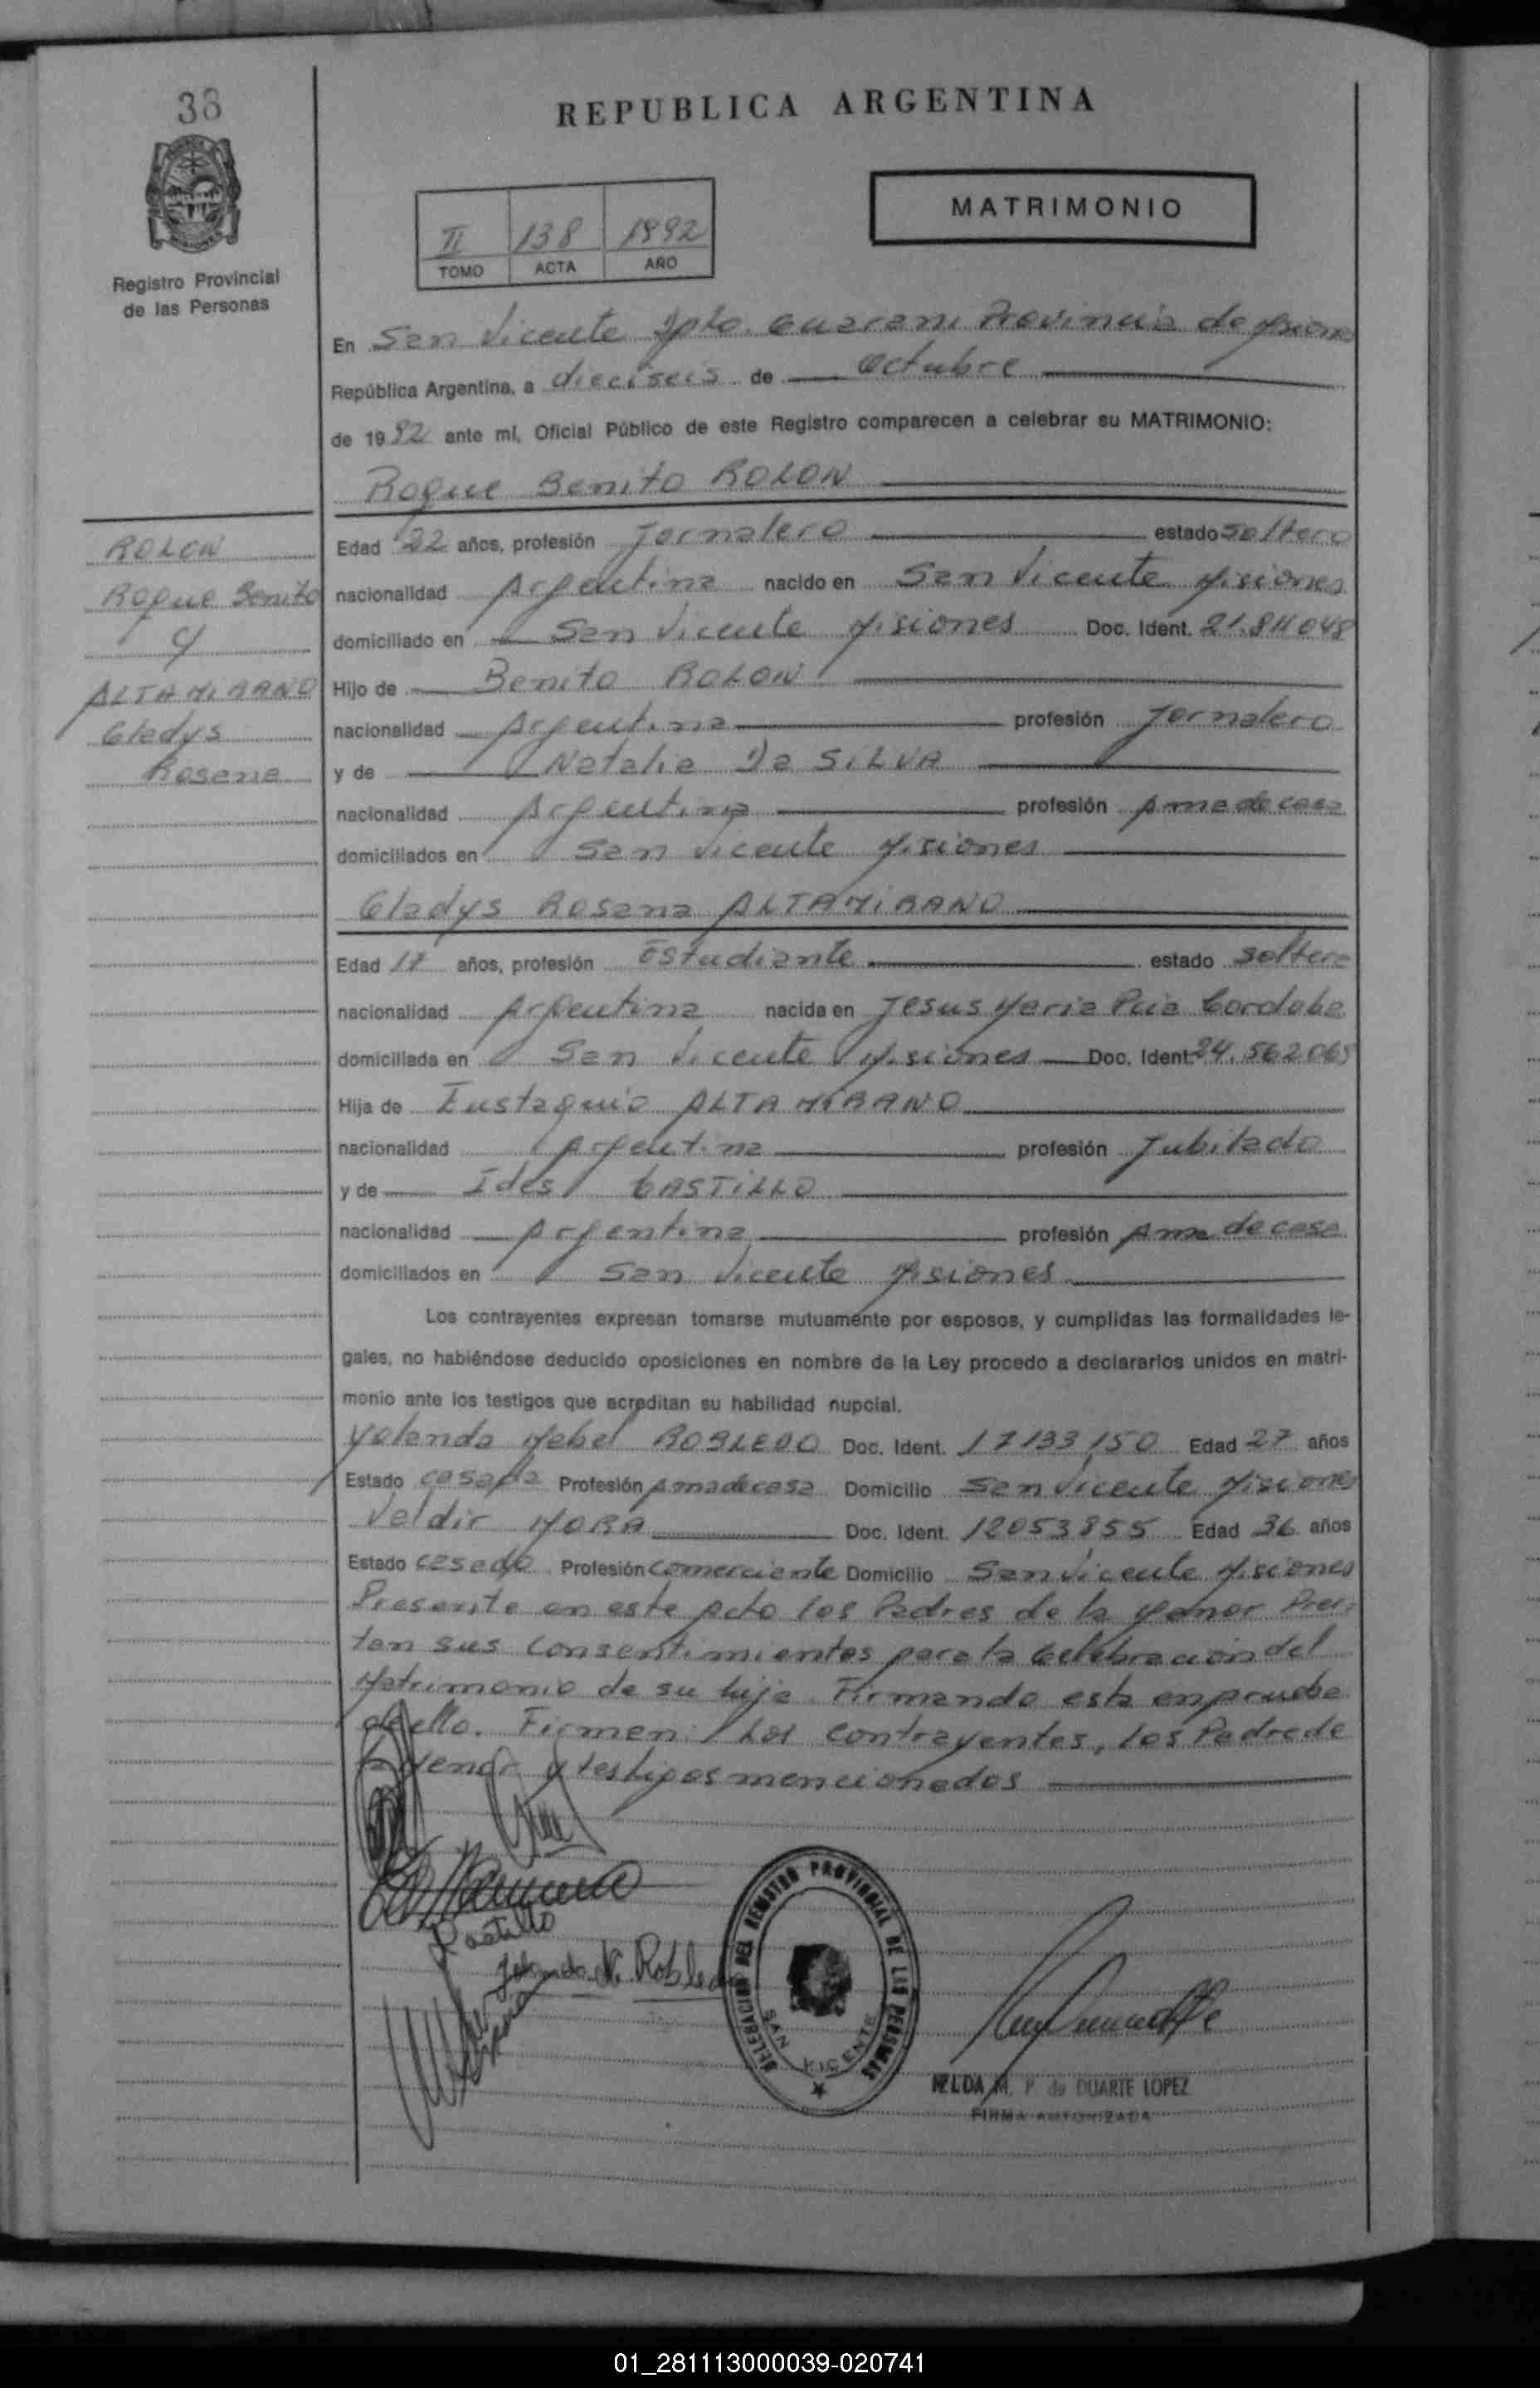 38
REPUBLICA ARGENTINA
MATRIMONIO
II 138 1992
TOMO ACTA AÑO
Registro Provincial
de las Personas
En San Vicente Dpto. Guarani Provincia de Misiones
República Argentina, a dieciseis de Octubre
de 1992 ante mí, Oficial Público de este Registro comparecen a celebrar su MATRIMONIO:
Roque Benito ROLON
ROLON
Roque Benito
y
ALTAMIRANO
Gladys
Rosana
Edad 22 años, profesión Jornalero estado Soltero
nacionalidad Argentina nacido en San Vicente Misiones
domiciliado en San Vicente Misiones Doc. Ident. 21.811048
Hijo de Benito ROLON
nacionalidad Argentina profesión Jornalero
y de Natalia Da SILVA
nacionalidad Argentina profesión Ama de casa
domiciliados en San Vicente Misiones
Gladys Rosana ALTAMIRANO
Edad 17 años, profesión Estudiante estado soltera
nacionalidad Argentina nacida en Jesus Maria Pcia Cordoba
domiciliada en San Vicente Misiones Doc. Ident. 24.562.065
Hija de Eustaquio ALTAMIRANO
nacionalidad Argentina profesión Jubilado
y de Ides CASTILLO
nacionalidad Argentina profesión Ama de casa
domiciliados en San Vicente Misiones
Los contrayentes expresan tomarse mutuamente por esposos, y cumplidas las formalidades le-
gales, no habiéndose deducido oposiciones en nombre de la Ley procedo a declararlos unidos en matri-
monio ante los testigos que acreditan su habilidad nupcial.
Yolanda Mabel ROBLEDO Doc. Ident. 17133150 Edad 27 años
Estado casada Profesión Ama de casa Domicilio San Vicente Misiones
Valdir MORA Doc. Ident. 12053855 Edad 36 años
Estado casado Profesión Comerciante Domicilio San Vicente Misiones
Presente en este Acto los Padres de la Menor Pres-
tan sus Consentimientos para la Celebracion del
Matrimonio de su hija. Firmando esta en prueba
de ello. Firman: Los contrayentes, los Padre de
la Menor y testigos mencionados
Castillo
Yolanda M. Robledo
DELEGACION DEL REGISTRO PROVINCIAL DE LAS PERSONAS
SAN VICENTE
NELDA M. P. de DUARTE LOPEZ
FIRMA AUTORIZADA
01_281113000039-020741